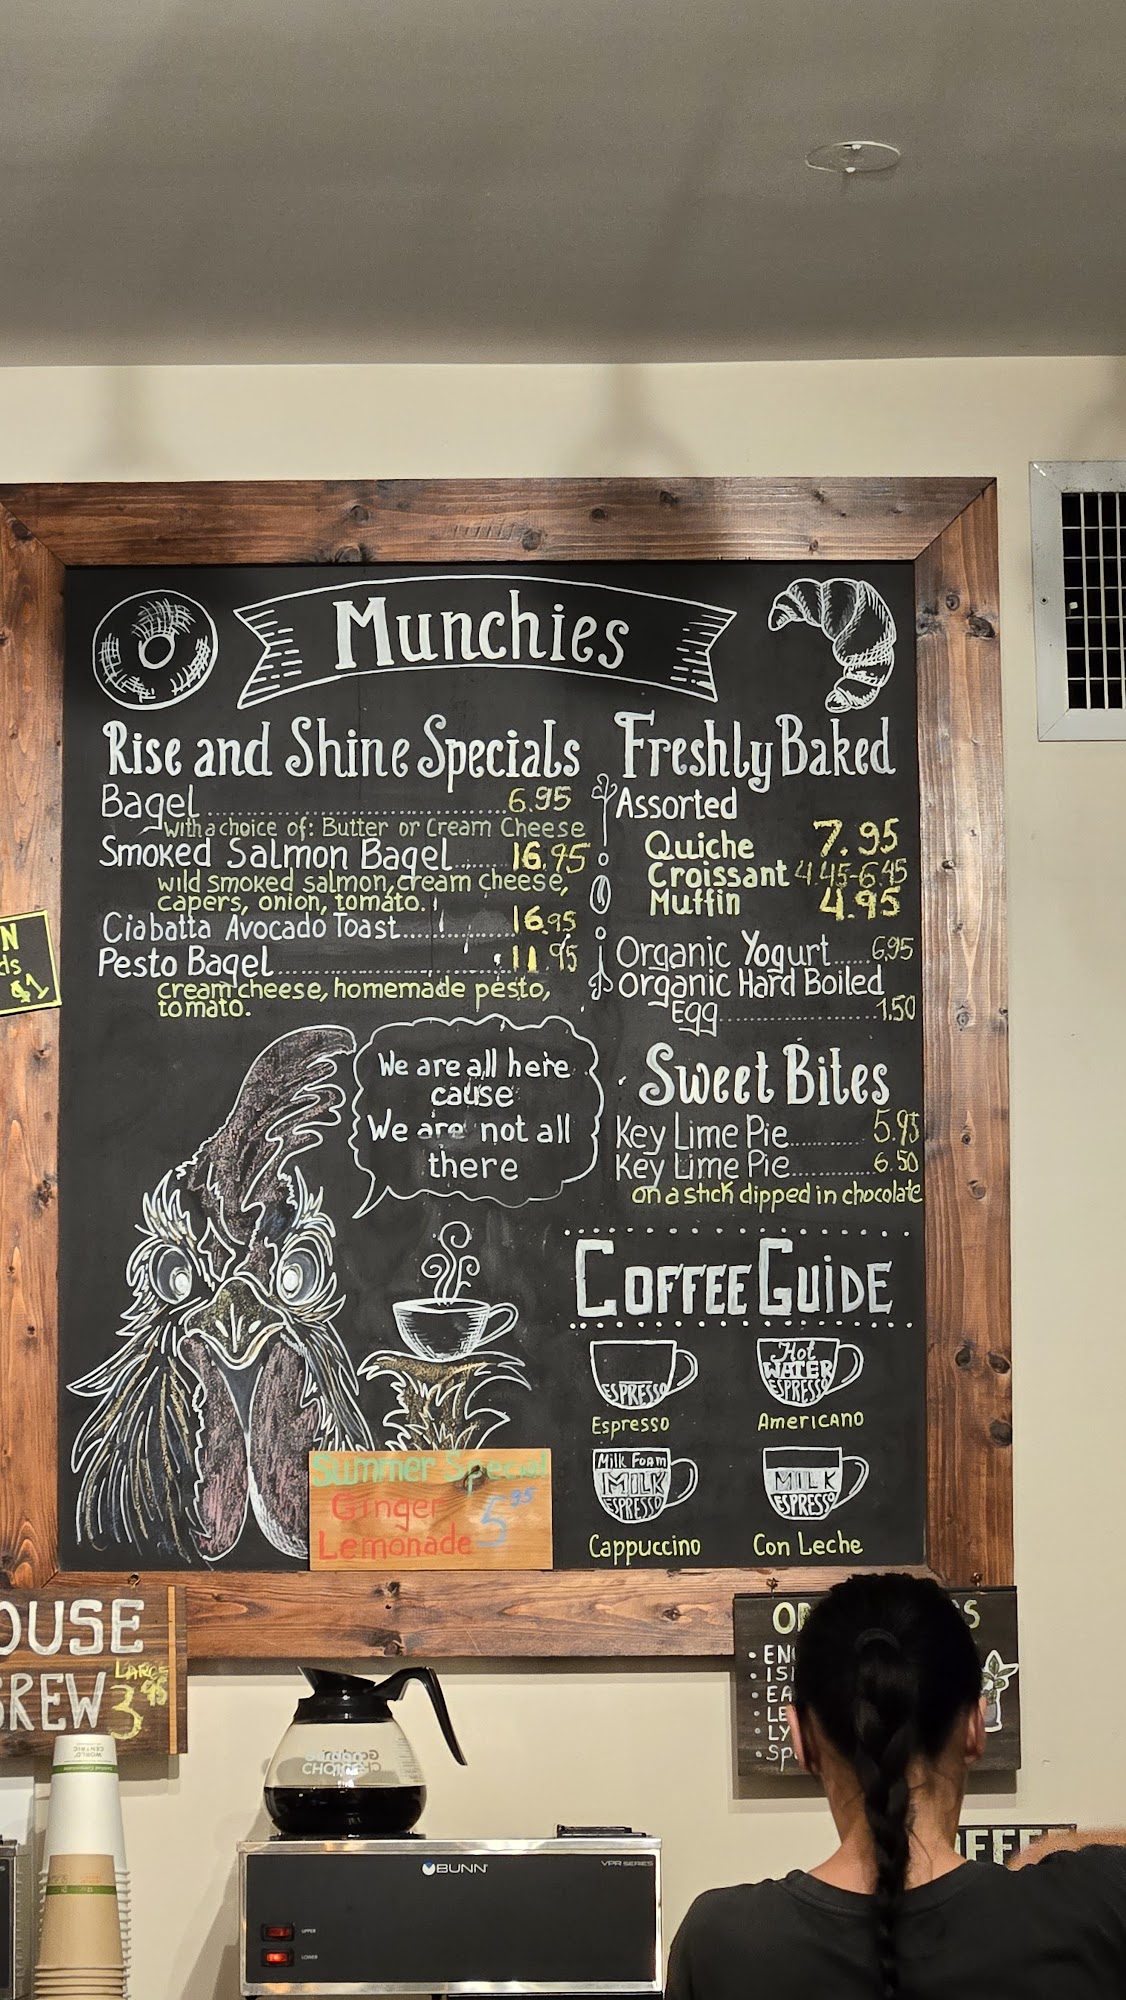 Munchies
Rise and Shine Specials
Bagel.............................6.95
with a choice of: Butter or Cream Cheese
Smoked Salmon Bagel.......16.95
wild smoked salmon, cream cheese,
capers, onion, tomato.
Ciabatta Avocado Toast............16.95
Pesto Bagel..........................11.95
cream cheese, homemade pesto,
tomato.
We are all here
cause
We are not all
there
Freshly Baked
Assorted
Quiche 7.95
Croissant 4.45-6.45
Muffin 4.95
Organic Yogurt.....6.95
Organic Hard Boiled
Egg....................1.50
Sweet Bites
Key Lime Pie..........5.95
Key Lime Pie..........6.50
on a stick dipped in chocolate
Coffee Guide
ESPRESSO
Espresso
Hot
WATER
ESPRESSO
Americano
Milk Foam
MILK
ESPRESSO
Cappuccino
MILK
ESPRESSO
Con Leche
Summer Special
Ginger
Lemonade 5.95
N
ds
$1
OUSE
BREW
LARGE
3.95
WORLD
CENTRIC
BUNN
VPR SERIES
UPPER
LOWER
OR
S
• EN
• IS
• EA
• LE
• LY
• Sp
OFFEE